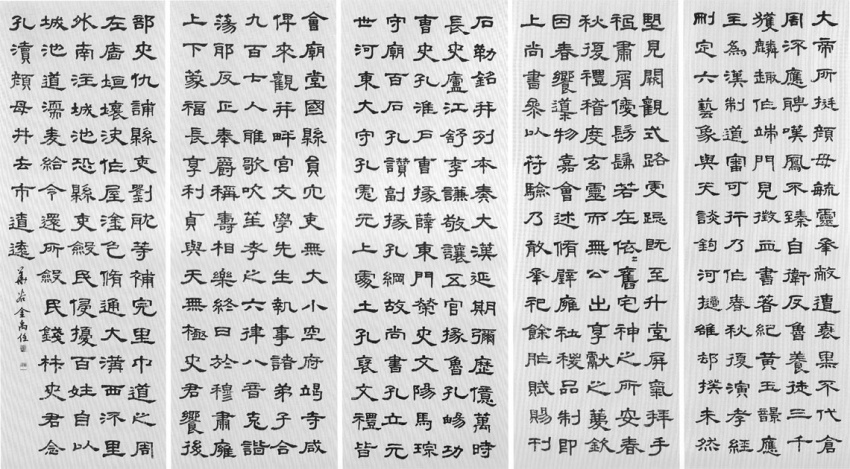 大帝所挺顏母毓靈承敝遭衰黑不代倉
周流應聘嘆鳳不臻自衛反魯養徒三千
獲麟趣作端門見徵血書著紀黃玉響應
主為漢制道審可行乃作春秋復演孝經
刪定六藝象與天談鉤河擿雒卻揆未然
堅見闕觀式路虔跽既至升堂屏氣拜手
祖肅屑僾髣髴若在依依舊宅神之所安春
秋復禮稽度玄靈而無公出享獻之薦欽
因春饗導物嘉會述脩璧廱社稷品制即
上尚書參以符驗乃敢承祀餘胙賦賜刊
石勒銘并列本奏大漢延期彌歷億萬時
長史廬江舒李謙敬讓五官掾魯孔暢功
曹史孔淮戶曹掾薛東門榮史文陽馬琮
守廟百石孔讚副掾孔綱故尚書孔立元
世河東大守孔彪元上處士孔褒文禮皆
會廟堂國縣員冗吏無大小空府竭寺咸
俾來觀并畔宮文學先生執事諸弟子合
九百七人雅歌吹笙考之六律八音克諧
蕩邪反正奉爵稱壽相樂終日於穆肅廱
上下蒙福長享利貞與天無極史君饗後
部史仇誧縣吏劉耽等補完里中道之周
左廧垣壞決作屋塗色脩通大溝西流里
外南注城池恐縣吏斂民侵擾百姓自以
城池道濡麥給令還所斂民錢材史君念
孔瀆顏母井去市遼遠